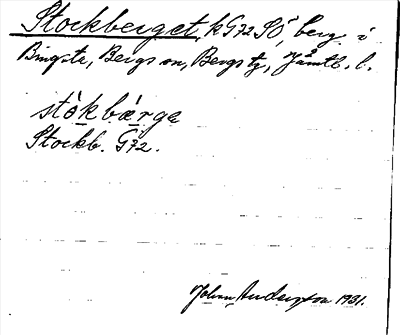 Stockberget, k G72 SÖ, berg i
Bingsta, Bergs sn, Bergs tg, Jämtl. l.
stòkbærge
Stockb. G72.
Johan Anderzon 1931.